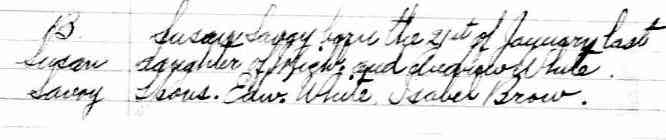 B. Susan Savoy born the 21st of January last
Susan daughter of and White.
Savoy Spons. Edw. White, Isabel Brow.